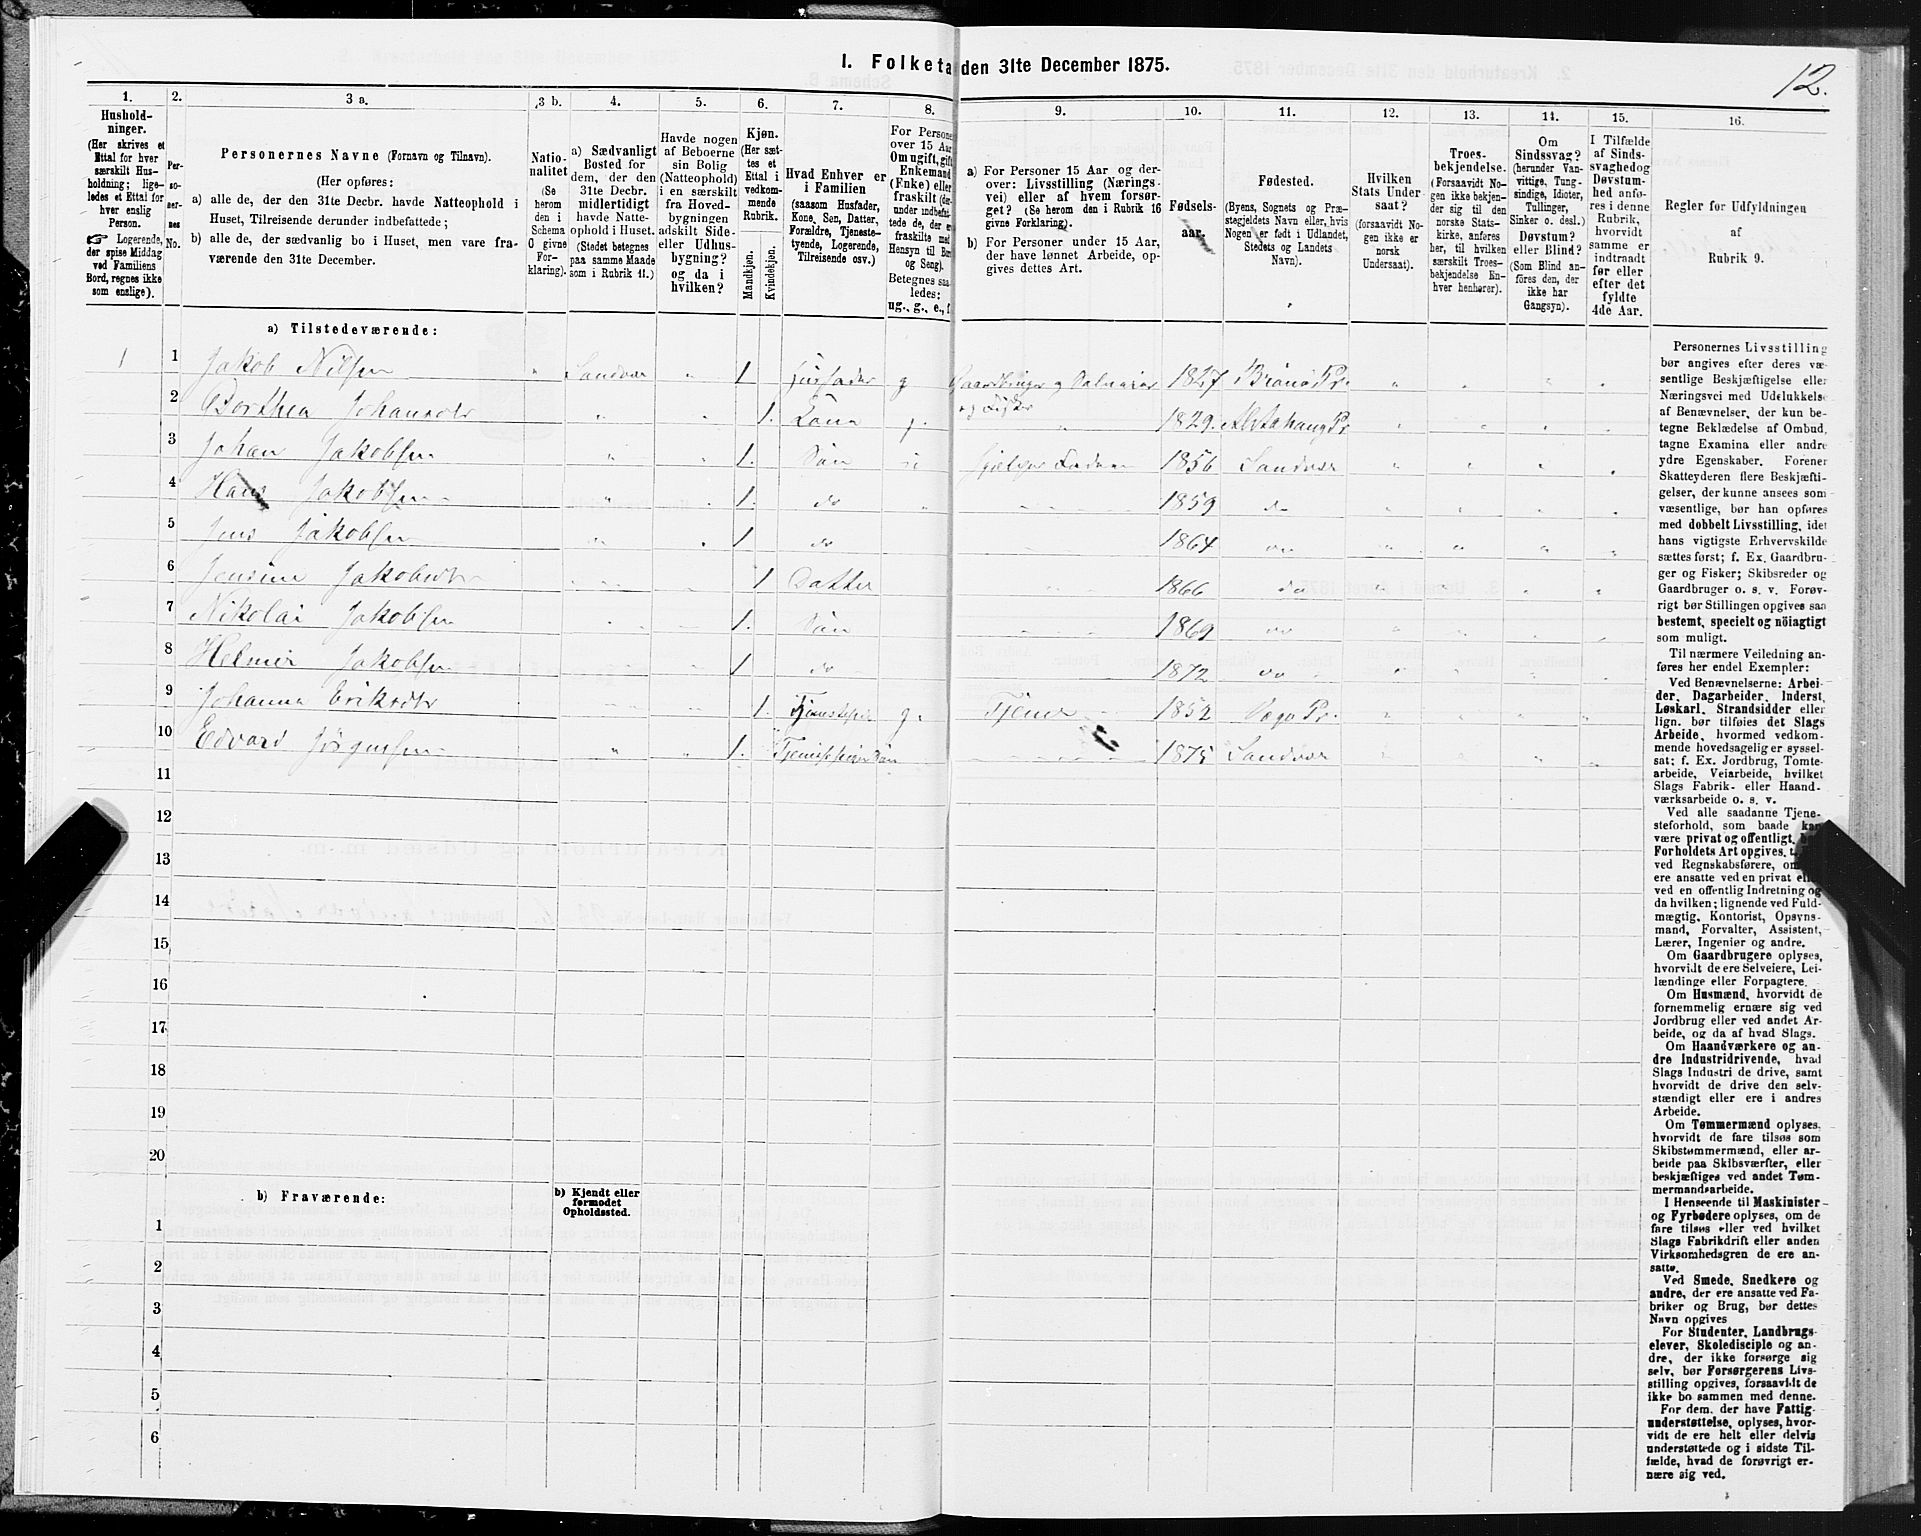 I. Folketa den 31te December 1875.
12.
1.
Husholdninger.
(Her skrives et
Ettal for hver
særskilt Hus-
holdning; lige-
ledes et Ettal for
hver enslig
Person.
☞ Logerende,
der spise Middag
ved Familiens
Bord, regnes ikke
som enslige).
2.
Per-
so-
ner-
nes
No.
3 a.
Personernes Navne (Fornavn og Tilnavn).
(Her opføres:
a) alle de, der den 31te Decbr. havde Natteophold i
Huset, Tilreisende derunder indbefattede;
b) alle de, der sædvanlig bo i Huset, men vare fra-
værende den 31te December.
3 b.
Natio-
nalitet
(Se
herom
den i
Schema
O givne
For-
klaring).
4.
a) Sædvanligt
Bosted for
dem, der den
31te Decbr.
midlertidigt
havde Natte-
ophold i Huset.
(Stedet betegnes
paa samme Maade
som i Rubrik 11.)
5.
Havde nogen
af Beboerne
sin Bolig
(Natteophold)
i en særskilt
fra Hoved-
bygningen
adskilt Side-
eller Udhus-
bygning?
og da i
hvilken?
6.
Kjøn.
(Her sæt-
tes et
Ettal i
vedkom-
mende
Rubrik.
Mandkjøn.
Kvindekjøn.
7.
Hvad Enhver er
i Familien
(saasom Husfader,
Kone, Søn, Datter,
Forældre, Tjeneste-
tyende, Logerende,
Tilreisende osv.)
8.
For Persone
over 15 Aar
Om ugift, gift
Enkemand
(Enke) eller
fraskilt (der-
under indbefat-
tede de, der e
fraskilte med
Hensyn til Bo
og Seng).
Betegnes saa-
ledes:
ug., g., e., f
9.
a) For Personer 15 Aar og der-
over: Livsstilling (Nærings-
vei) eller af hvem forsør-
get? (Se herom den i Rubrik 16
givne Forklaring).
b) For Personer under 15 Aar,
der have lønnet Arbeide, op-
gives dettes Art.
10.
Fødsels-
aar.
11.
Fødested.
(Byens, Sognets og Præ-
stegjeldets Navn eller, hvis
Nogen er født i Udlandet,
Stedets og Landets
Navn).
12.
Hvilken
Stats Under-
saat?
(forsaavidt No-
gen ikke er
norsk
Undersaat).
13.
Troes-
bekjendelse.
(Forsaavidt No-
gen ikke bekjen-
der sig til den
norske Stats-
kirke, anføres
her, til hvilken
særskilt Troes-
bekjendelse En-
hver henhører).
14.
Om
Sindssvag?
(herunder Van-
vittige, Tung-
sindige, Idioter,
Tullinger,
Sinker o. desl.)
Døvstum?
eller Blind?
(Som Blind an-
føres den, der
ikke har
Gangsyn).
15.
I Tilfælde
af Sinds-
svaghed og
Døvstum-
hed anfø-
res i denne
Rubrik,
hvorvidt
samme er
indtraadt
før eller
efter det
fyldte
4de Aar.
16.
Regler for Udfyldningen
af
Rubrik 9.
a) Tilstedeværende:
1 1 Jakob Nilsen " Sandvær " 1 Husfader g Gaardbruger 1827 Brønø Pr. " " " "
og Fisker
2 Dorthea Johansdtr " 1. Kone g. " 1829. Alstahaug Pr.
3 Johan Jakobsen " 1. Søn Hjelper Faderen 1856 Sandvær
4 Hans Jakobsen " 1. do 1859 do
5 Jens Jakobsen 1 do 1864 do
6 Jensine Jakobsdtr 1 Datter 1866 do
7 Nikolai Jakobsen 1. Søn 1869 do
8 Helmer Jakobsen 1 do 1872 do
9 Johanna Eriksdtr 1. g. Tjener 1852 Vega Pr.
10 Edvard Jørgensen 1. Søn 1875 Sandvær
11
12
13
14
15
16
17
18
19
20
b) Fraværende:
b) Kjendt eller
formodet
Opholdssted.
1
2
3
4
5
6
Personernes Livsstilling
bør angives efter deres væ-
sentlige Beskjæftigelse eller
Næringsvei med Udelukkelse
af Benævnelser, der kun be-
tegne Beklædelse af Ombud,
tagne Examina eller andre
ydre Egenskaber. Forener
Skatteyderen flere Beskjæfti-
gelser, der kunne ansees som
væsentlige, bør han opføres
med dobbelt Livsstilling, idet
hans vigtigste Erhvervskilde
sættes først; f. Ex. Gaardbru-
ger og Fisker; Skibsreder og
Gaardbruger o. s. v. Forøv-
rigt bør Stillingen opgives saa
bestemt, specielt og nøiagtigt
som muligt.
Til nærmere Veiledning an-
føres her endel Exempler:
Ved Benævnelserne: Arbei-
der, Dagarbeider, Inderst,
Løskarl, Strandsidder eller
lign. bør tilføies det Slags
Arbeide, hvormed vedkom-
mende hovedsagelig er syssel-
sat; f. Ex. Jordbrug, Tomte-
arbeide, Veiarbeide, hvilket
Slags Fabrik- eller Haand-
værksarbeide o. s. v.
Ved alle saadanne Tjene-
steforhold, som baade kan
være privat og offentligt,
Forholdets Art opgives,
ved Regnskabsførere, om
ere ansatte ved en privat el
ved en offentlig Indretning og
da hvilken; lignende ved Fuld-
mægtig, Kontorist, Opsyns-
mand, Forvalter, Assistent,
Lærer, Ingeniør og andre.
Om Gaardbrugere oplyses,
hvorvidt de ere Selveiere, Lei-
lændinge eller Forpagtere.
Om Husmænd, hvorvidt de
fornemmelig ernære sig ved
Jordbrug eller ved andet Ar-
beide, og da af hvad Slags.
Om Haandværkere og an-
dre Industridrivende, hvad
Slags Industri de drive, samt
hvorvidt de drive den selv-
stændigt eller ere i andres
Arbeide.
Om Tømmermænd oplyses,
hvorvidt de fare tilsøs som
Skibstømmermænd, eller ar-
beide paa Skibsværfter, eller
beskjæftiges ved andet Tøm-
mermandsarbeide.
I Henseende til Maskinister
og Fyrbødere oplyses, om de
fare tilsøs eller ved hvilket
Slags Fabrikdrift eller anden
Virksomhedsgren de ere an-
satte.
Ved Smede, Snedkere og
andre, der ere ansatte ved Fa-
briker og Brug, bør dettes
Navn opgives
For Studenter, Landbrugs-
elever, Skoledisciple og an-
dre, der ikke forsørge sig
selv, bør Forsørgerens Livs-
stilling opgives, forsaavidt de
ikke bo sammen med denne.
For dem, der have Fattig-
understøttelse, oplyses, hvor-
vidt de ere helt eller delvis
understøttede og i sidste Til-
fælde, hvad de forøvrigt er-
nære sig ved.